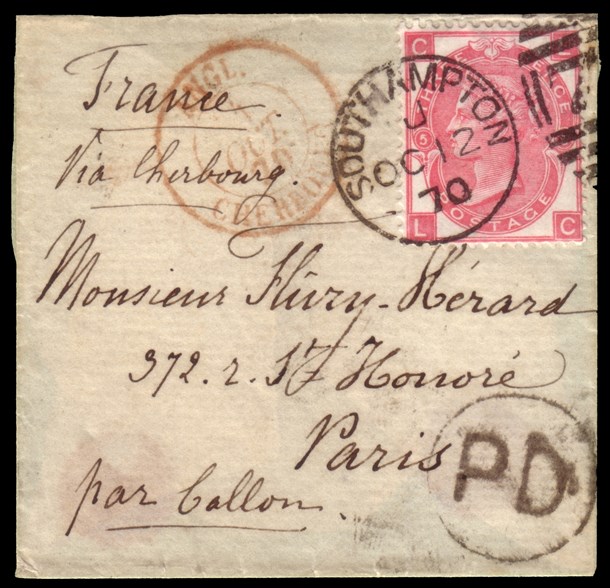 France
Via Cherbourg.
Monsieur Flury-Hérard
372. r. St Honoré
Paris
par Ballon.
ANGL.
OCT.
CHERBOURG
SOUTHAMPTON
OC 12
70
C
PENCE
POSTAGE
L C
5
PD